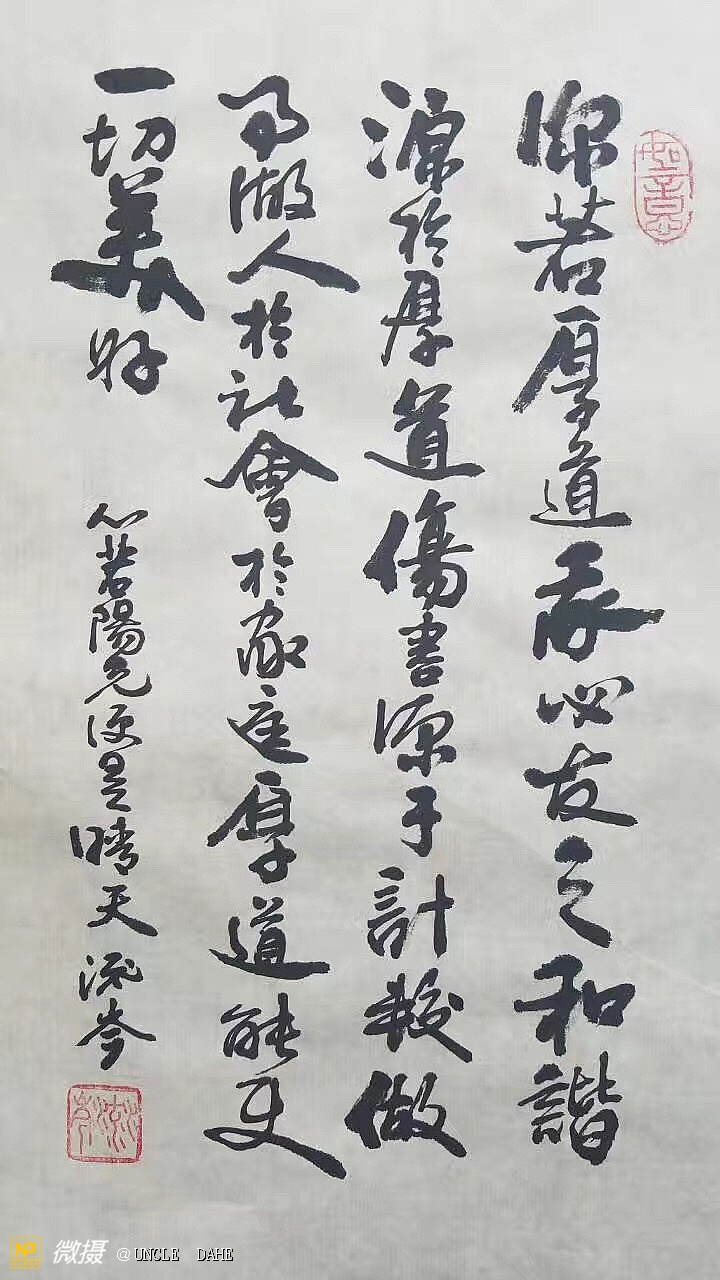 如意
你若厚道我必友之和諧
源於厚道傷害源于計較做
事做人於社會於家庭厚道能使
一切美好
心若陽光便是晴天 流岑
NP 微摄 @UNCLE DAHE